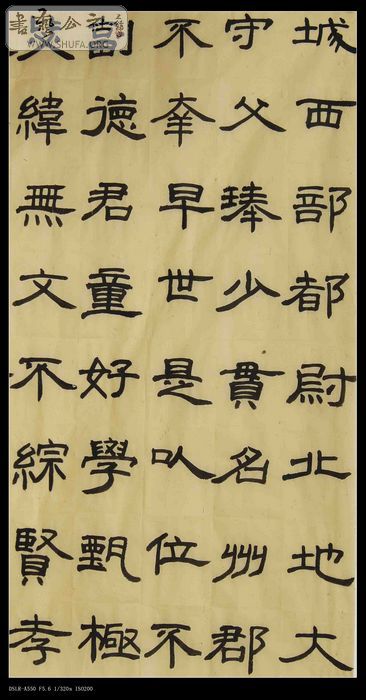 書藝公社
WWW.SHUFA.ORG
城西部都尉北地大
守父琫少貫名州郡
不幸早世是以位不
副德君童好學甄極
緯無文不綜賢孝
DSLR-A550 F5.6 1/320s ISO200